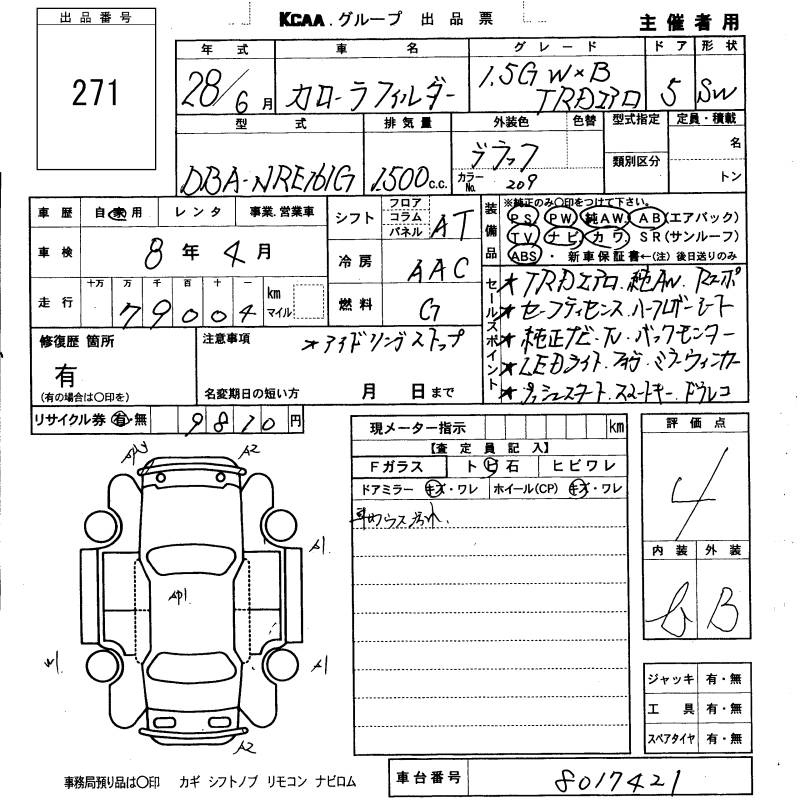 出品番号
271
KCAA.グループ 出品票 主催者用
年式 車名 グレード ドア 形状
28/6月 カローラフィルダー 1.5G W×B TRDエアロ 5 SW
型式 排気量 外装色 色替 型式指定 定員・積載
DBA-NRE161G 1500c.c. ブラック 名
カラーNo. 209 類別区分 トン
車歴 自家用 レンタ 事業.営業車
車検 8年4月
走行 十万 万 千 百 十 一 km マイル
79004
シフト フロア コラム パネル AT
冷房 AAC
燃料 G
装備品
※純正のみ○印をつけて下さい。
PS PW 純AW AB(エアバック)
TV ナビ カワ SR(サンルーフ)
ABS ・ 新車保証書←(注)後日送りのみ
セールスポイント
★TRDエアロ.純AW.Rスポ
★セーフティセンス.ハーフレザーシート
★純正ナビ・TV・バックモニター
★LEDライト.フォグ.ミラーウィンカー
★プッシュスタート.スマートキー.ドラレコ
修復歴 箇所
有
(有の場合は○印を)
注意事項
★アイドリングストップ
名変期日の短い方 月 日まで
リサイクル券 有・無 9810円
現メーター指示 km
【査定員記入】
Fガラス ト ビ 石 ヒビワレ
ドアミラー キズ・ワレ ホイール(CP) キズ・ワレ
車内ウス汚れ.
評価点
4
内装 外装
b B
A2
A1
AP1
W1
A1
A2
ジャッキ 有・無
工具 有・無
スペアタイヤ 有・無
事務局預り品は○印 カギ シフトノブ リモコン ナビロム
車台番号 8017421